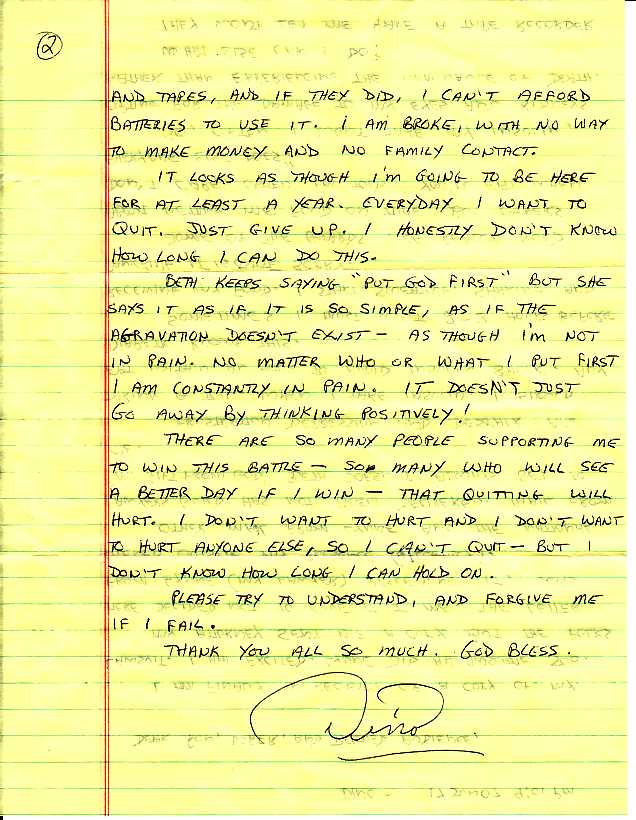 ②
AND TAPES, AND IF THEY DID, I CAN'T AFFORD
BATTERIES TO USE IT. I AM BROKE, WITH NO WAY
TO MAKE MONEY AND NO FAMILY CONTACT.
IT LOOKS AS THOUGH I'M GOING TO BE HERE
FOR AT LEAST A YEAR. EVERYDAY I WANT TO
QUIT. JUST GIVE UP. I HONESTLY DON'T KNOW
HOW LONG I CAN DO THIS.
BETH KEEPS SAYING "PUT GOD FIRST" BUT SHE
SAYS IT AS IF IT IS SO SIMPLE, AS IF THE
AGRAVATION DOESN'T EXIST — AS THOUGH I'M NOT
IN PAIN. NO MATTER WHO OR WHAT I PUT FIRST
I AM CONSTANTLY IN PAIN. IT DOESN'T JUST
GO AWAY BY THINKING POSITIVELY!
THERE ARE SO MANY PEOPLE SUPPORTING ME
TO WIN THIS BATTLE — SO MANY WHO WILL SEE
A BETTER DAY IF I WIN — THAT QUITTING WILL
HURT. I DON'T WANT TO HURT AND I DON'T WANT
TO HURT ANYONE ELSE, SO I CAN'T QUIT — BUT I
DON'T KNOW HOW LONG I CAN HOLD ON.
PLEASE TRY TO UNDERSTAND, AND FORGIVE ME
IF I FAIL.
THANK YOU ALL SO MUCH. GOD BLESS.
Dino